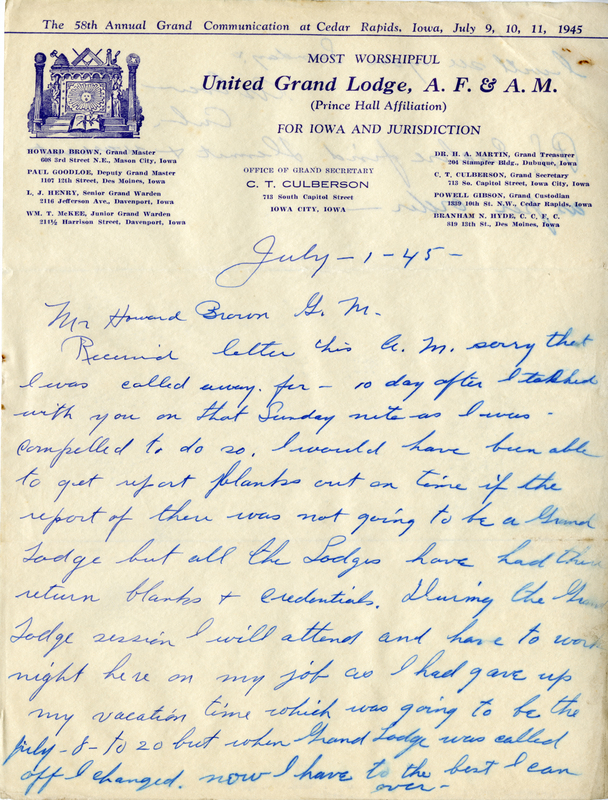 The 58th Annual Grand Communication at Cedar Rapids, Iowa, July 9, 10, 11, 1945
MOST WORSHIPFUL
United Grand Lodge, A. F. & A. M.
(Prince Hall Affiliation)
FOR IOWA AND JURISDICTION
HOWARD BROWN, Grand Master
608 3rd Street N.E., Mason City, Iowa
PAUL GOODLOE, Deputy Grand Master
1107 12th Street, Des Moines, Iowa
L. J. HENRY, Senior Grand Warden
2116 Jefferson Ave., Davenport, Iowa
WM. T. McKEE, Junior Grand Warden
211½ Harrison Street, Davenport, Iowa
OFFICE OF GRAND SECRETARY
C. T. CULBERSON
713 South Capitol Street
IOWA CITY, IOWA
DR. H. A. MARTIN, Grand Treasurer
204 Stampfer Bldg., Dubuque, Iowa
C. T. CULBERSON, Grand Secretary
713 So. Capitol Street, Iowa City, Iowa
POWELL GIBSON, Grand Custodian
1339 10th St. N.W., Cedar Rapids, Iowa
BRANHAM N. HYDE, C. C. F. C.
819 13th St., Des Moines, Iowa
July - 1 - 45 -
Mr Howard Brown G. M.
Received letter this A. M. sorry that
I was called away. for - 10 day after I talked
with you on that Sunday nite as I was -
compelled to do so. I would have been able
to get report blanks out on time if the
report of there was not going to be a Grand
Lodge but all the Lodges have had their
return blanks + credentials. During the Grand
Lodge session I will attend and have to work
night here on my job as I had gave up
my vacation time which was going to be the
July - 8 - to 20 but when Grand Lodge was called
off I changed. now I have to the best I can
over -